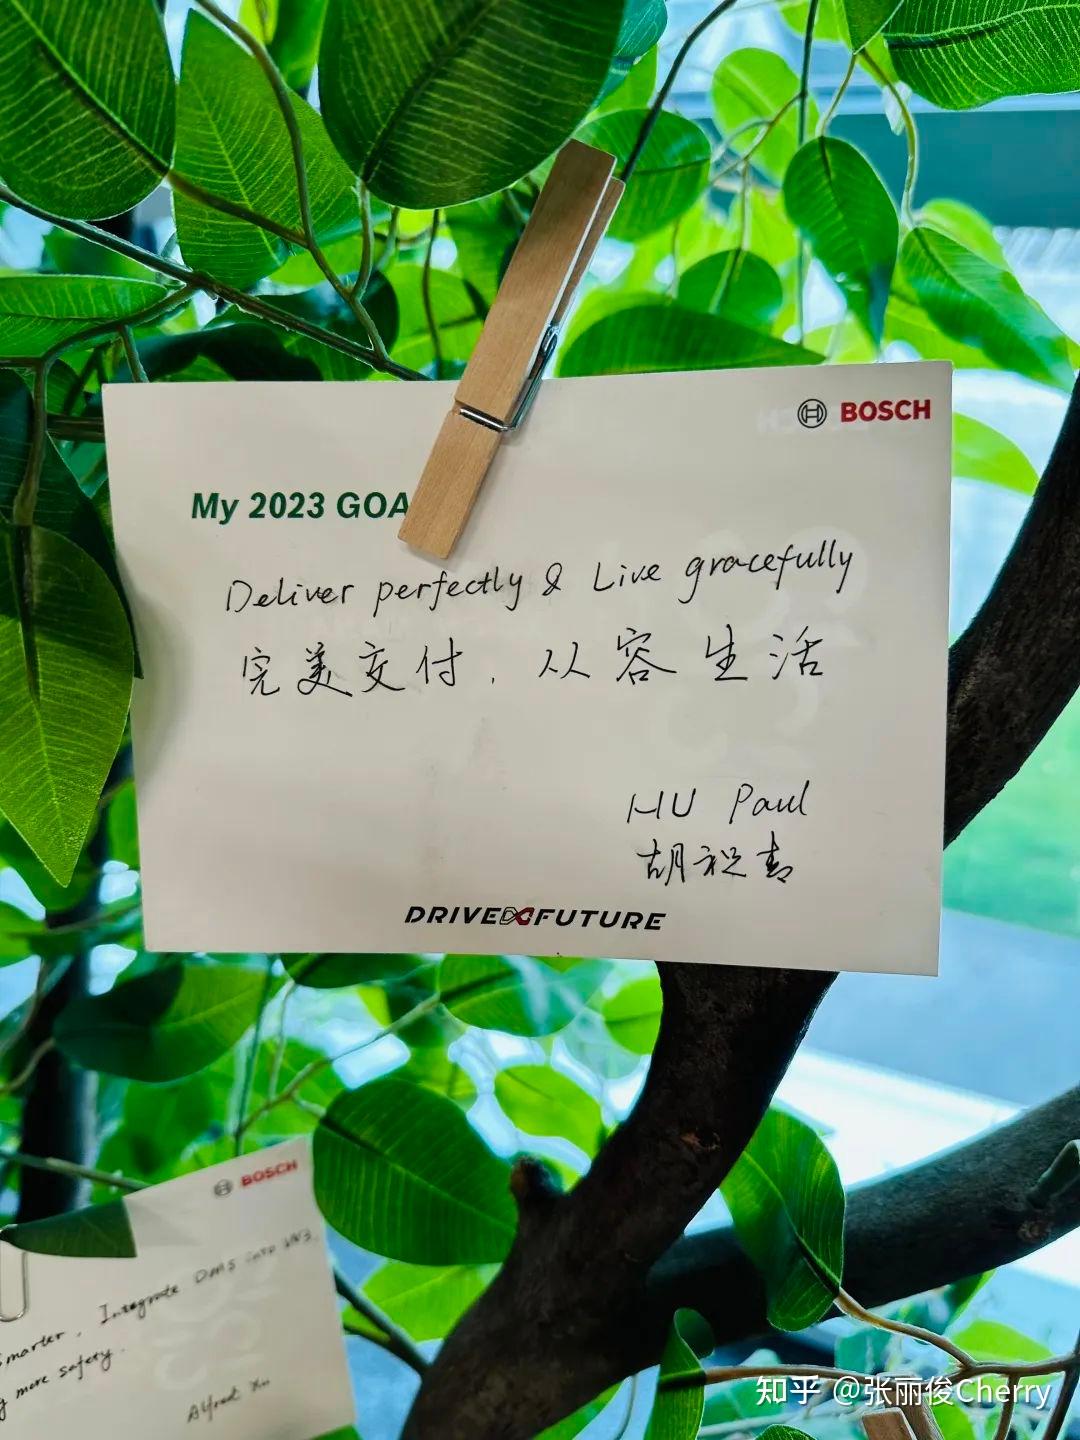 BOSCH
My 2023 GOA
Deliver perfectly & Live gracefully
完美交付，从容生活
HU Paul
胡祝青
DRIVE FUTURE
BOSCH
Integrate DMS into
smarter.
more safety.
Alfred Xu
知乎 @张丽俊Cherry